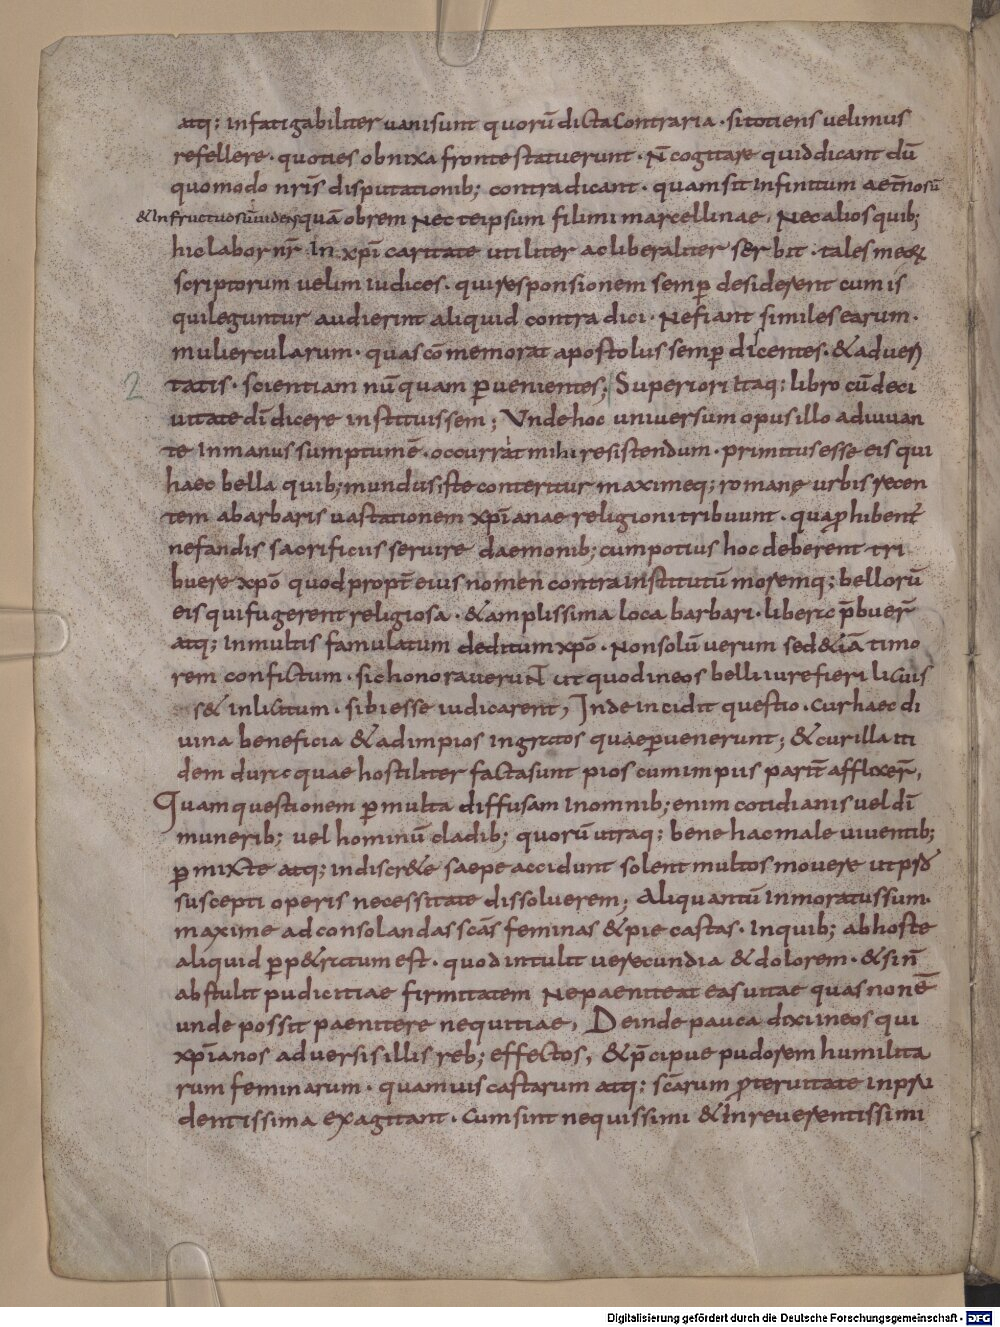 atq; infatigabiliter uani sunt quorū dicta contraria · si totiens uelimus
refellere · quoties obnixa fronte statuerunt · N̄ cogitare quid dicant dū
quomodo nr̄is disputationib; contradicant · quam sit infinitum aerūnosū
& infructuosū uides quā obrem Nec te ipsum fili mi marcelline · Nec alios quib;
hic labor nr̄ In xp̄i caritate utiliter ac liberaliter seruit · tales meoꝝ
scriptorum uelim iudices · qui responsionem semꝑ desiderent cum is
qui leguntur audierint aliquid contra dici · Ne fiant similes earum ·
muliercularum · quas cōmemorat apostolus semꝑ discentes · & ad ueri
tatis · scientiam nūquam ꝑuenientes; Superiori itaq; libro cū deci
uitate dī dicere instituissem; Vnde hoc uniuersum opus illo adiuuan
te In manus sumptum ē · occurrit mihi resistendum · primitus esse eis qui
haec bella quib; mundus iste conteritur maximeq; romanę urbis recen
tem a barbaris uastationem xp̄ianae religioni tribuunt · qua ꝓhibent̄
nefandis sacrificiis seruire daemonib; cum potius hoc deberent tri
buere xp̄o quod propt̄ eius nomen contra institutū moremq; bellorū
eis qui fugerent religiosa · & amplissima loca barbari · libera p̄buer̄
atq; In multis famulatum deditum xp̄o · Non solū uerum sed & iā timo
rem confictum · sic honorauerunt ut quod in eos belli iure fieri licuis
s& inlicitum · sibi esse iudicarent, Inde incidit questio · cur haec di
uina beneficia & ad impios ingratos quae ꝑuenerunt; & cur illa iti
dem dura quae hostiliter facta sunt pios cum impiis parit̄ afflixer̄,
Quam questionem ꝑ multa diffusam In omnib; enim cotidianis uel dī
munerib; uel hominū cladib; quorū utraq; bene hac male uiuentib;
ꝑmixte atq; indiscr&e saepe accidunt solent multos mouere ut pro
suscepti operis necessitate dissoluerem; Aliquantū Inmoratus sum ·
maxime ad consolandas scās feminas & pie castas · In quib; ab hoste
aliquid ꝑp&ratum est · quod intulit uerecundia & dolorem · & si n̄
abstulit pudicitiae firmitatem Ne paeniteat eas uitae quas non ē
unde possit paenitere nequitiae, Deinde pauca dixi in eos qui
xp̄ianos aduersis illis reb; effectos, & p̄cipue pudorem humilita
rum feminarum · quamuis castarum atq; scārum ꝓteruitate inpru
dentissima exagitant · Cum sint nequissimi & Inreuerentissimi
2
Digitalisierung gefördert durch die Deutsche Forschungsgemeinschaft - DFG